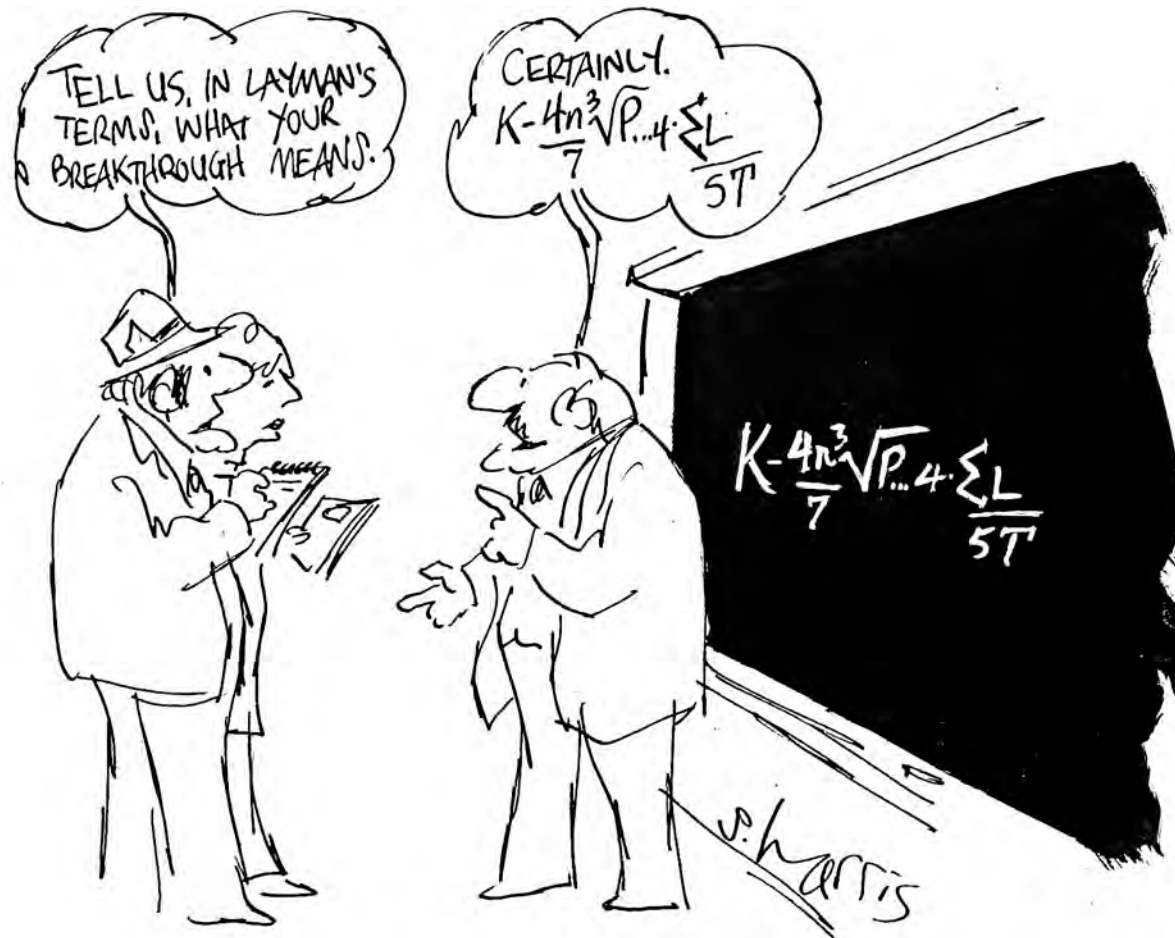 TELL US, IN LAYMAN'S
TERMS, WHAT YOUR
BREAKTHROUGH MEANS.
CERTAINLY.
K-4n³/7 √P...4·ΣL/5T
K-4n³/7 √P...4·ΣL/5T
s. harris